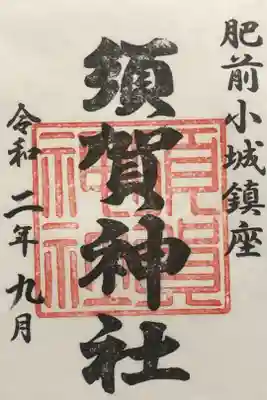 肥前小城鎮座
須賀神社
令和二年九月